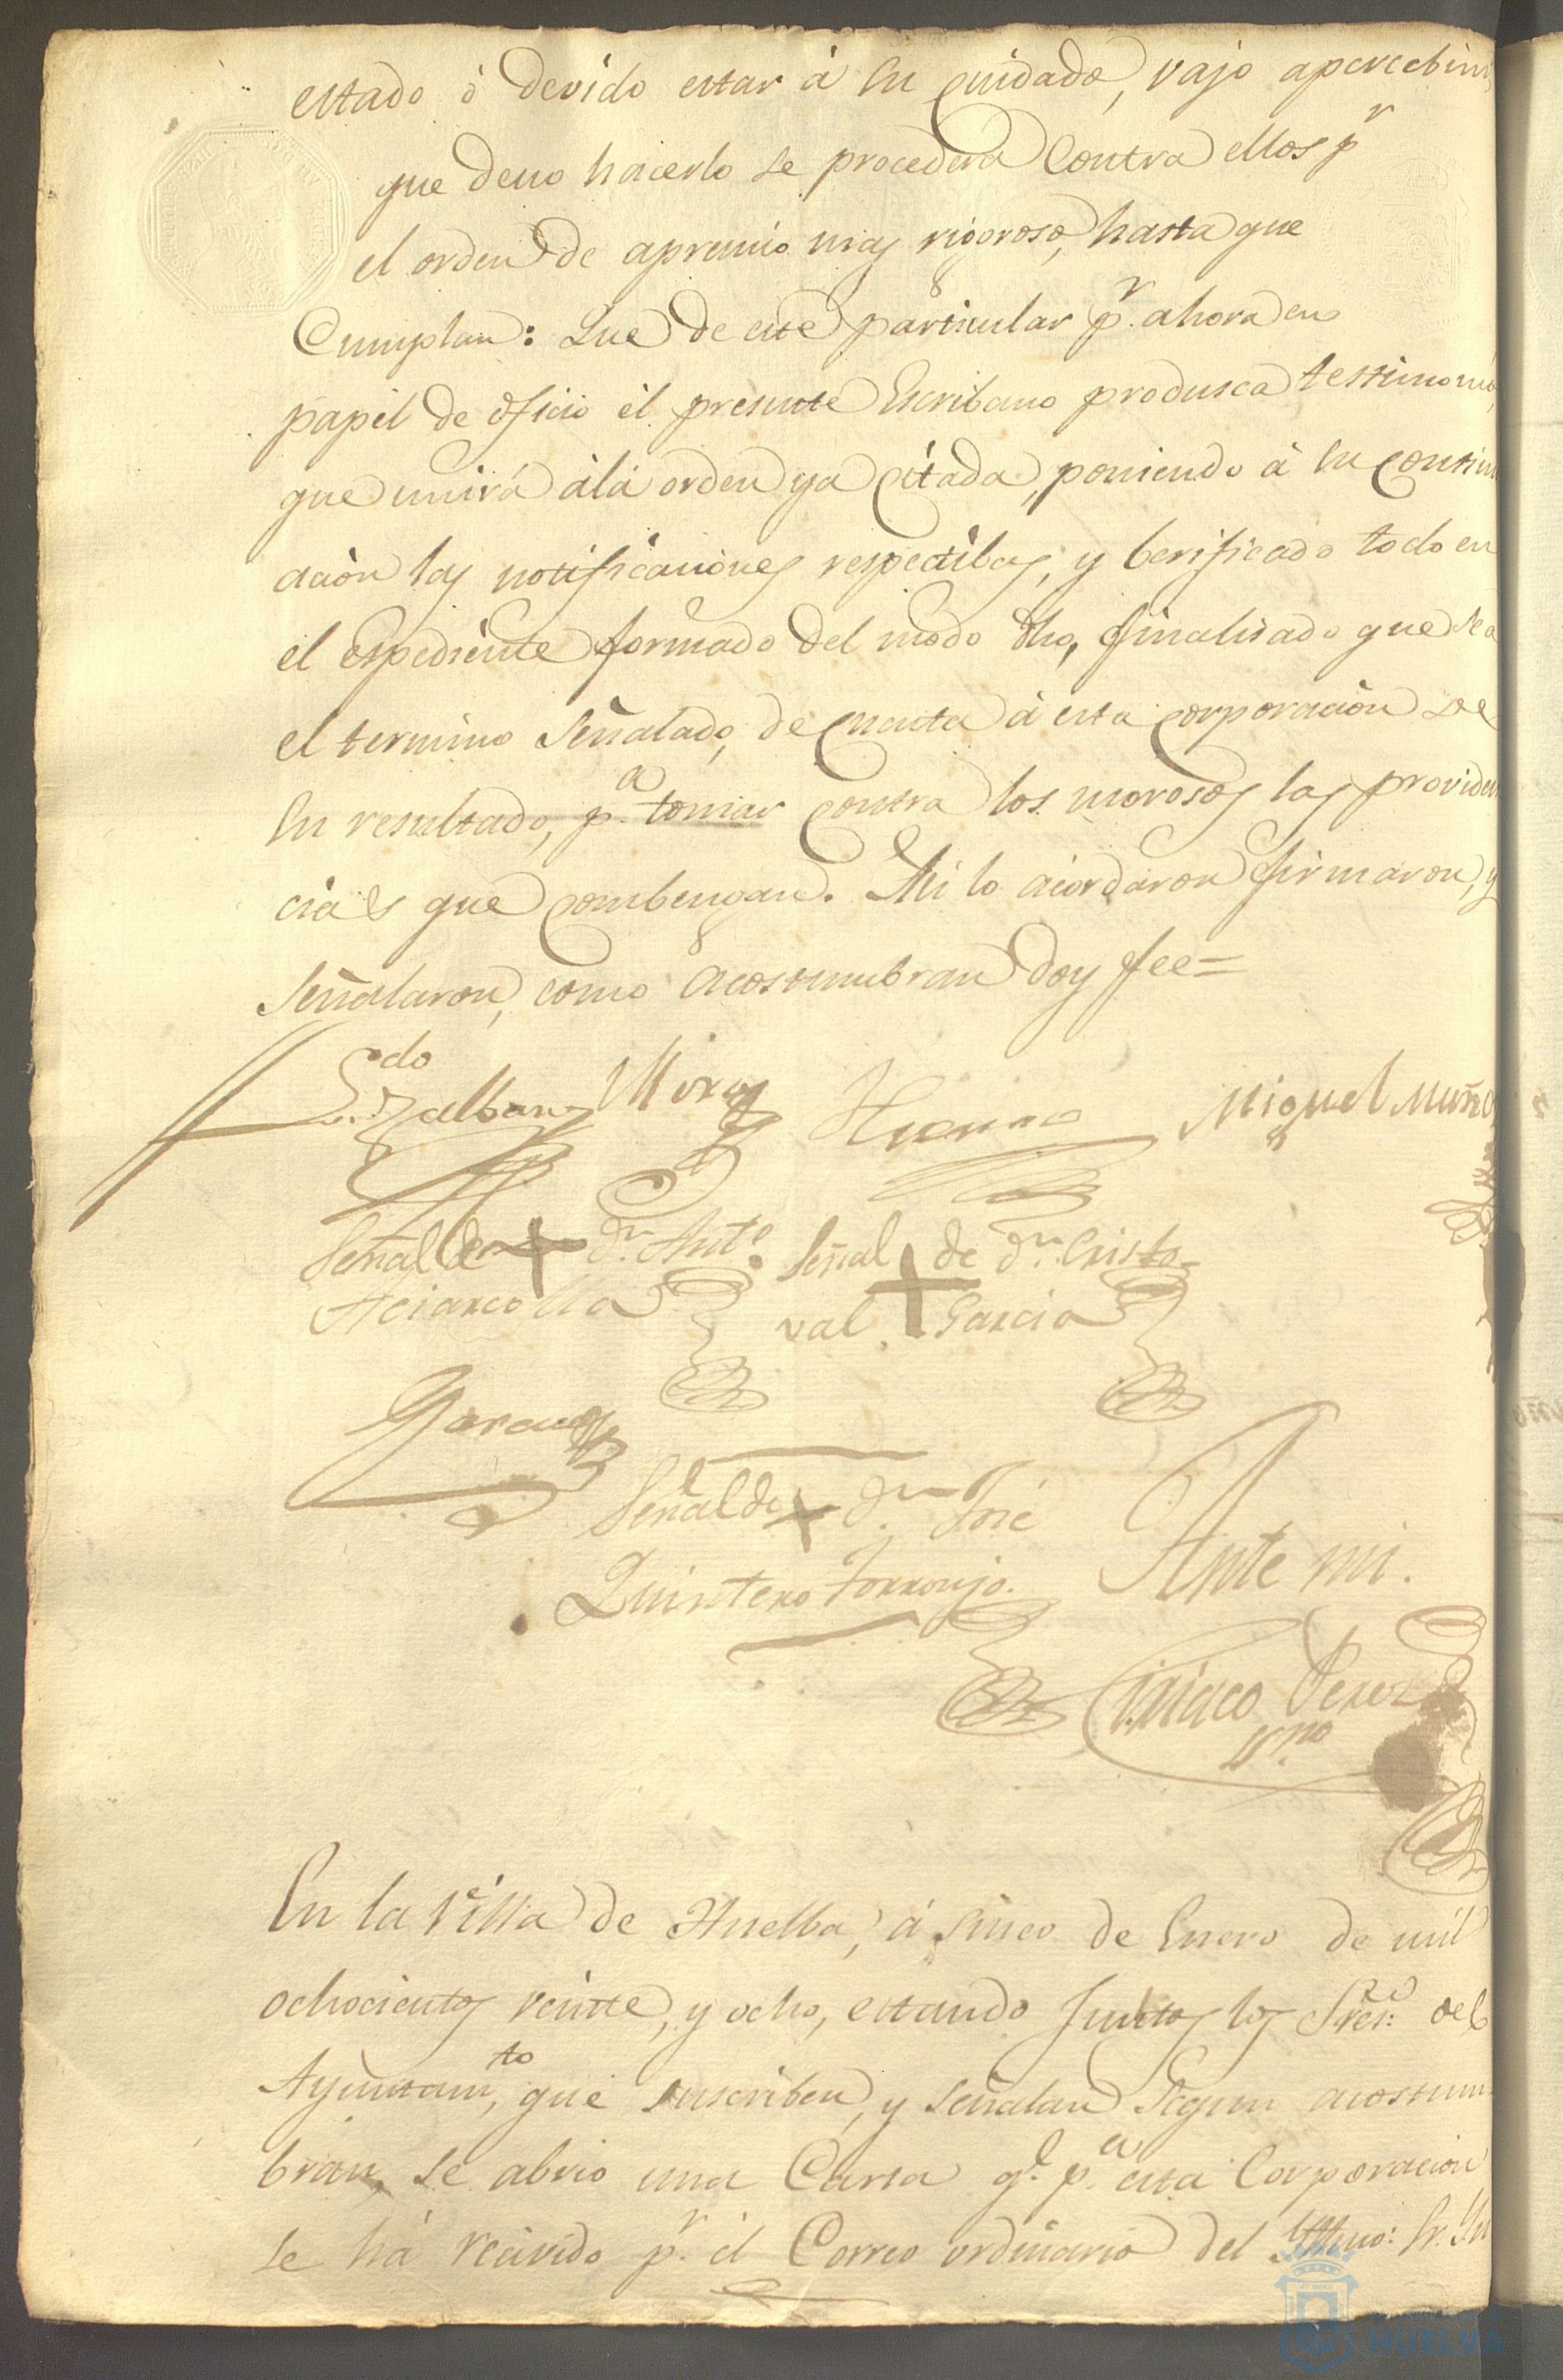 estado ò devido estar à su cuidado, vajo apercebim
que de no hacerlo se procederà contra ellos pr
el orden de apremio mas rigoroso, hasta que
Cumplan: Que de este particular pr. ahora en
papel de oficio el presente Escribano produsca testimonio,
que unirá à la orden ya citada, poniendo à su continu
aciòn las notificaciones respectibas, y berificado todo en
el Espediente formado del modo dho, finalisado que sea
el termino señalado, de cuenta à esta corporaciòn de
su resultado, pa. tomar contra los morosos las providen
cias que combengan. Asi lo acordaron firmaron, y
señalaron, como acostumbran doy fee=
Ldo
Moras Miguel Muñoz
Señal de + dn. Anto. Señal + de dn. Cristo-
val Garcia
Señal de + dn. José
Quintero Torronjo. Ante mi.
Ciriaco Perez
ssno
En la Villa de Huelba, à sinco de Enero de mil
ochocientos veinte, y ocho, estando Juntos los Sres. del
Ayuntamto, que suscriben, y señalan segun acostum
bran, se abrio una Carta qe. pa. esta Corporacion
se ha recivido pr. el Correo ordinario del Yllmo: Sr. Yn
HUELVA